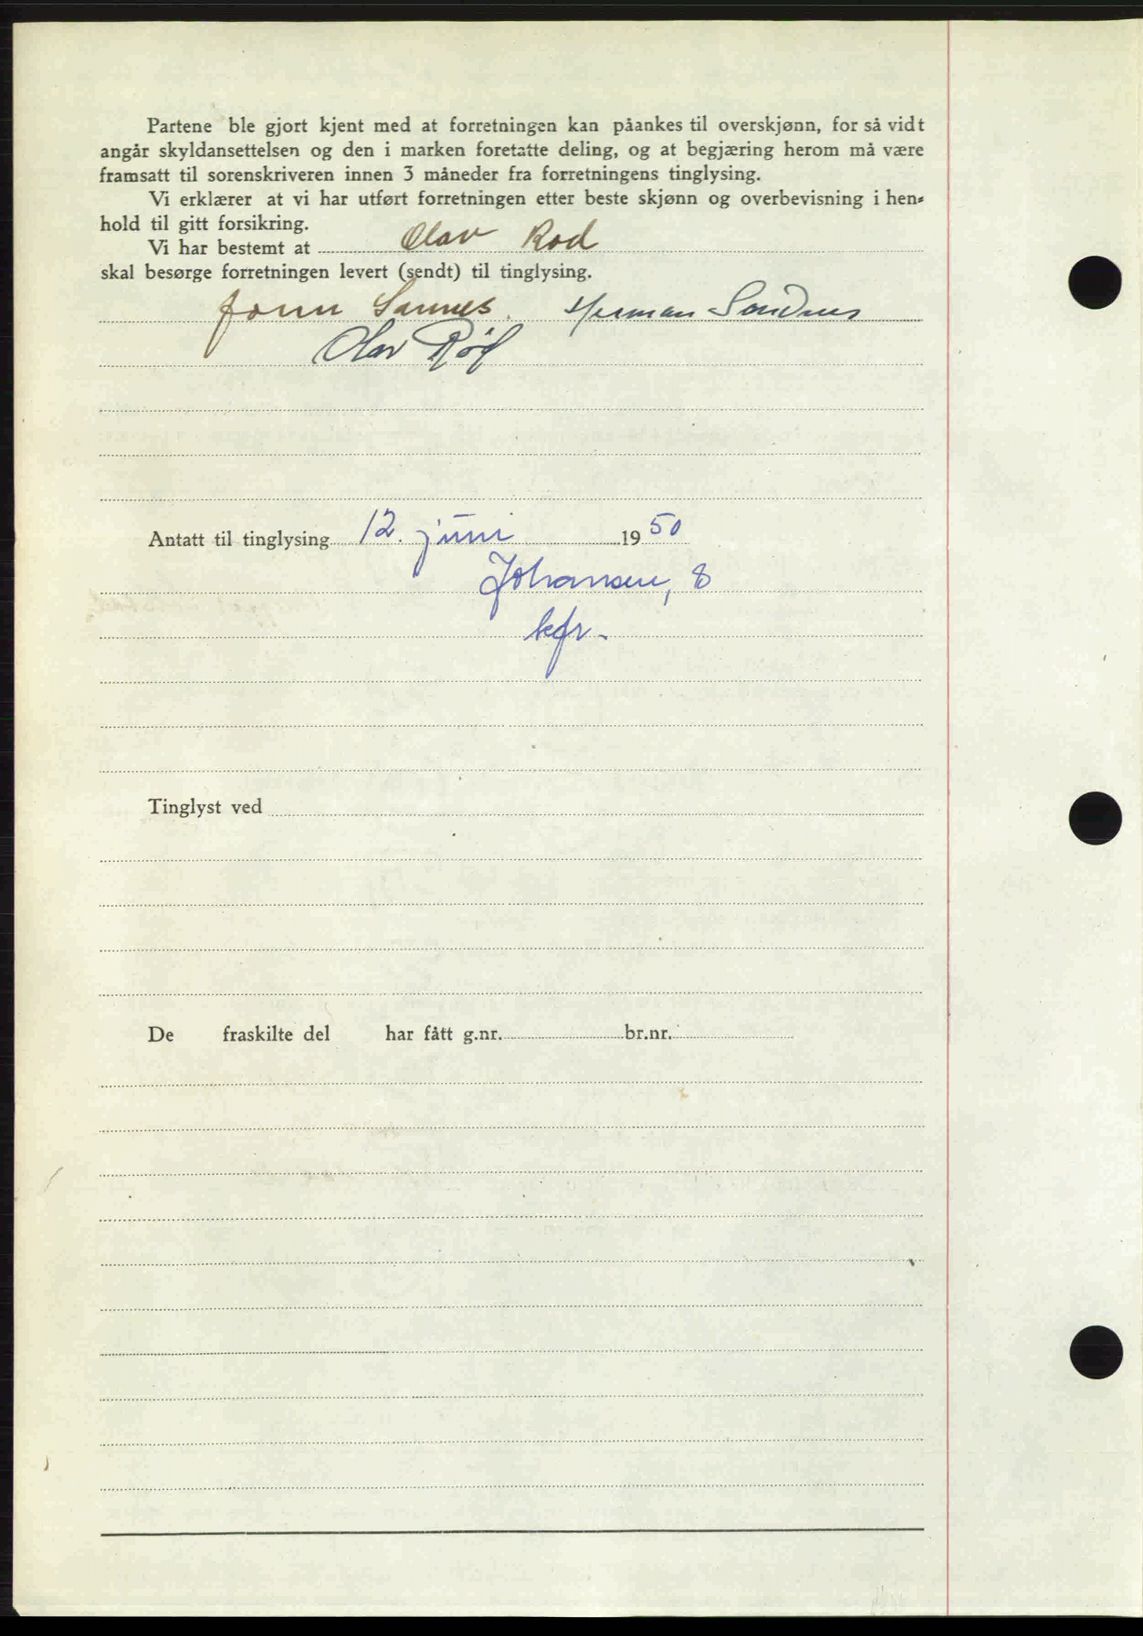 Partene ble gjort kjent med at forretningen kan påankes til overskjønn, for så vidt
angår skyldansettelsen og den i marken foretatte deling, og at begjæring herom må være
framsatt til sorenskriveren innen 3 måneder fra forretningens tinglysing.
Vi erklærer at vi har utført forretningen etter beste skjønn og overbevisning i hen-
hold til gitt forsikring.
Vi har bestemt at Olav Rød
skal besørge forretningen levert (sendt) til tinglysing.
Sannes. Herman Sandnes
Olav Rød
Antatt til tinglysing 12. juni 1950
Johansen,
kfr.
Tinglyst ved
De fraskilte del har fått g.nr. br.nr.